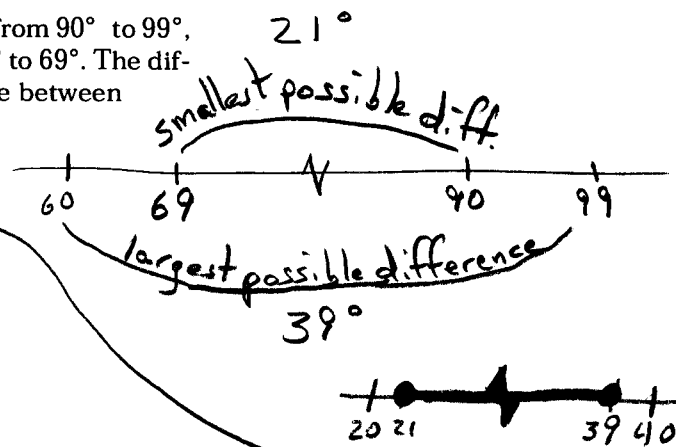 from 90° to 99°,
to 69°. The dif-
e between
21°
smallest possible diff.
60 69 90 99
largest possible difference
39°
20 21 39 40